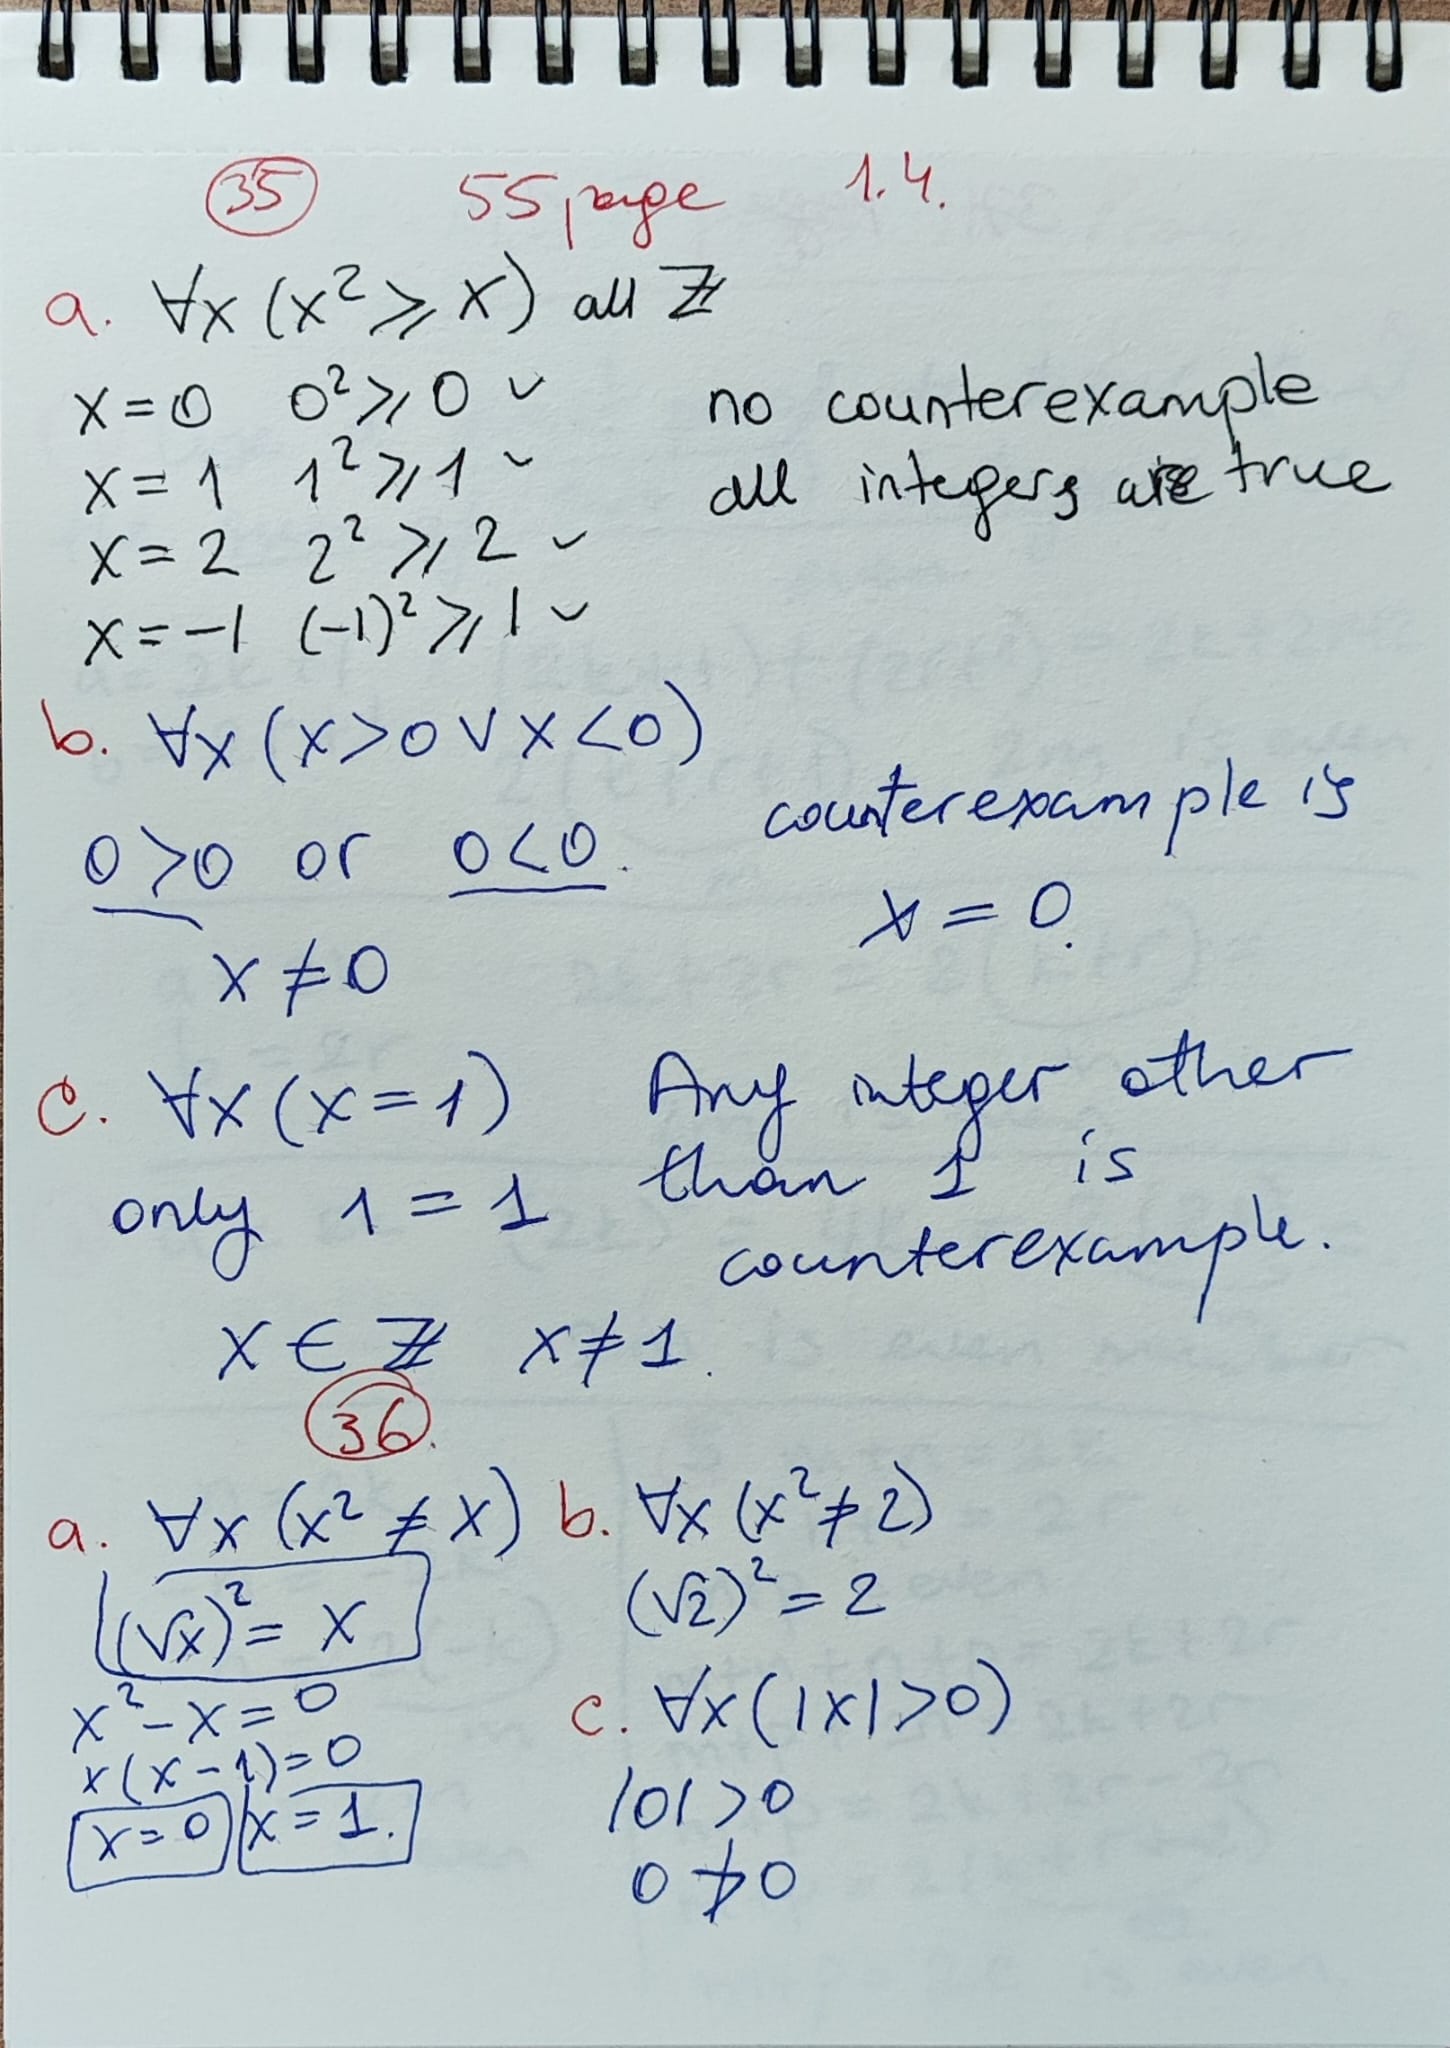 35 55 page 1.4.
a. ∀x (x² ⩾ x) all ℤ
x = 0 0² ⩾ 0 ✓
x = 1 1² ⩾ 1 ✓
x = 2 2² ⩾ 2 ✓
x = -1 (-1)² ⩾ 1 ✓
no counterexample
all integers are true
b. ∀x (x > 0 ∨ x < 0)
0 > 0 or 0 < 0.
x ≠ 0
counterexample is
x = 0.
c. ∀x (x = 1)
only 1 = 1
Any integer other
than 1 is
counterexample.
x ∈ ℤ x ≠ 1.
36.
a. ∀x (x² ≠ x)
(√x)² = x
x² - x = 0
x (x - 1) = 0
x = 0 x = 1.
b. ∀x (x² ≠ 2)
(√2)² = 2
c. ∀x (|x| > 0)
|0| > 0
0 ≯ 0